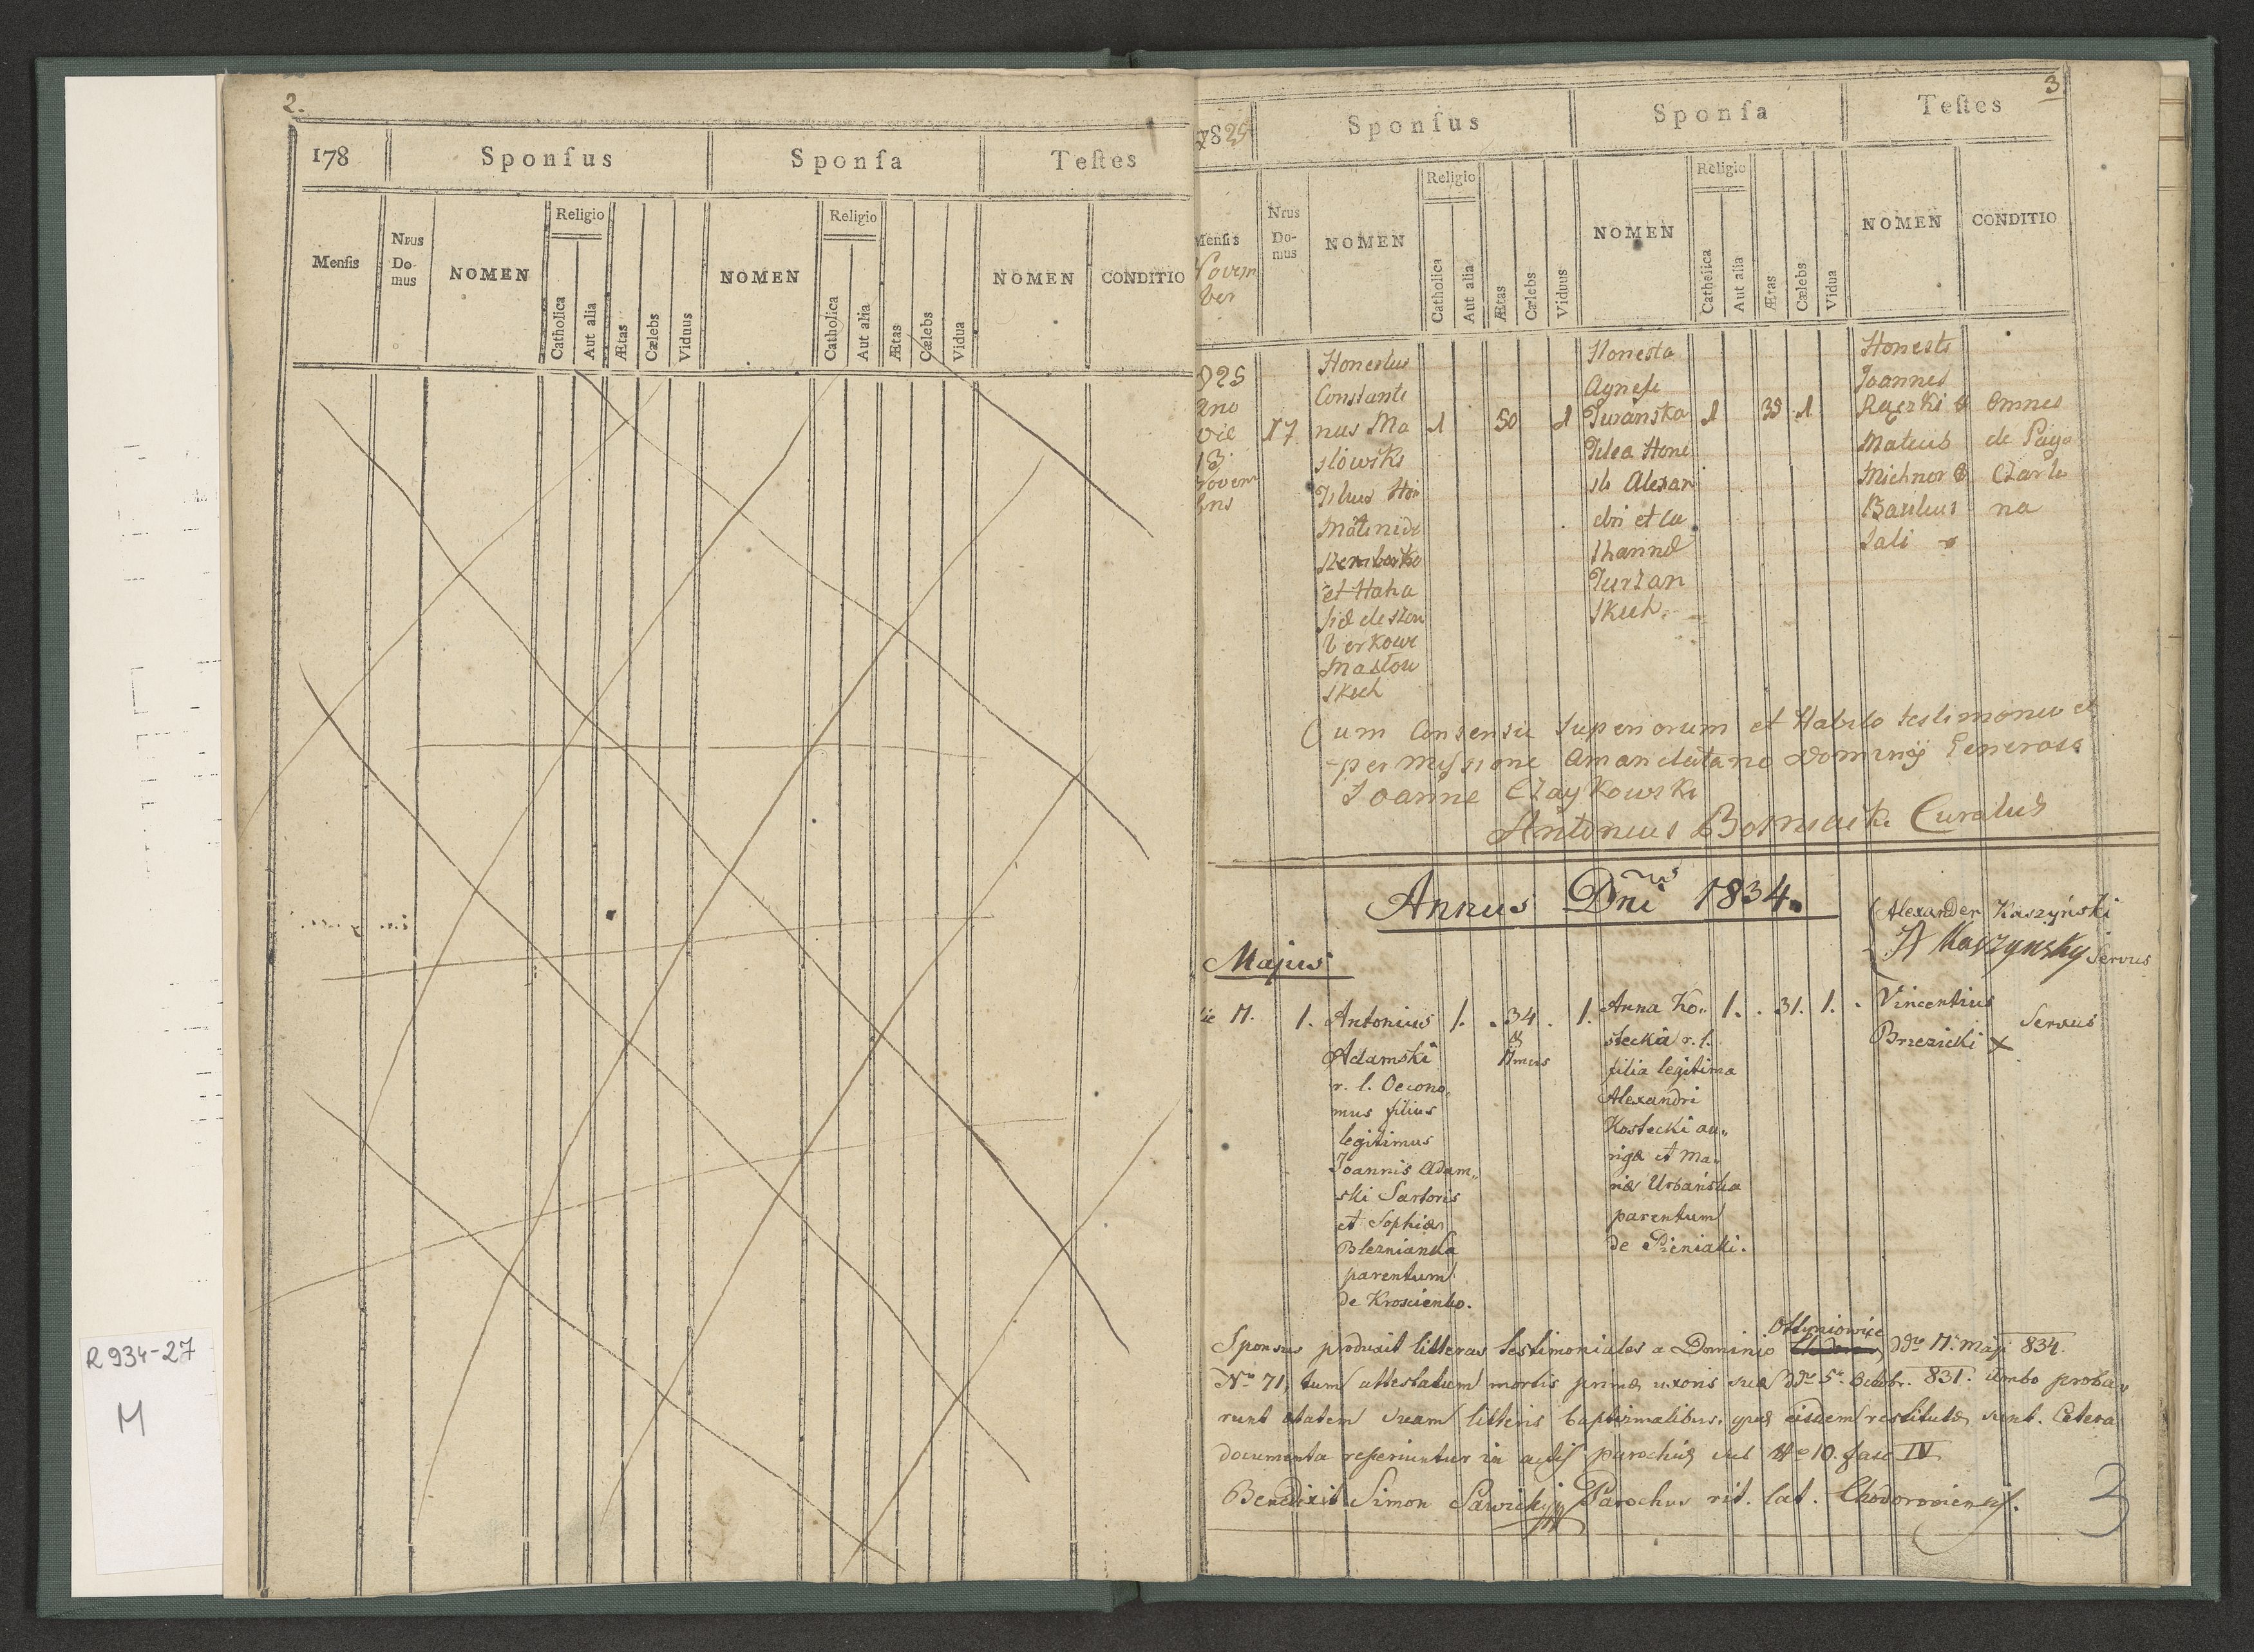 2.
178
Sponſus
Sponſa
Teſtes
Menſis
Nrus
Do-
mus
NOMEN
Religio
Catholica
Aut alia
Ætas
Cælebs
Viduus
NOMEN
Religio
Catholica
Aut alia
Ætas
Cælebs
Vidua
NOMEN
CONDITIO
R 934-27
M
3.
Sponſus
Sponſa
Teſtes
Menſis
Novem
ber
Nrus
Do-
mus
NOMEN
Religio
Catholica
Aut alia
Ætas
Cælebs
Viduus
NOMEN
Religio
Catholica
Aut alia
Ætas
Cælebs
Vidua
NOMEN
CONDITIO
825
17
Honestus
Constanti
nus Ma
slowski
et Hana
Maslow
skich
1
50
1
Honesta
Agnese
Filia Hone
sti Alexan
dri et Ca
skich
1
1
Honesti
Joannes
Raczki &
Mateus
Michnor &
Basilius
Sali
Omnes
de Pago
Czarte
na
Cum Consensu Superiorum et Habito testimonio et
permissione a mandatario Dominij Generoso
Joanne Czaykowski
Antonius Curatus
Annus Dni 1834.
Majus
Alexander Kaszyński
Kaszynsky Servus
11.
1.
Antonius
Adamski
r. l. Oecono„
mus filius
legitimus
Joannis Adam„
ski Sartoris
et Sophiæ
parentum
de Krościenko.
1.
34
1.
Anna Ko„
stecka r. l.
filia legitima
Alexandri
Kostecki au„
rigæ et Ma„
riæ Urbańska
parentum
de Pieniaki.
1.
31.
1.
Vincentius
Brzezicki x
Servus
Sponsus produxit litteras testimoniales a Dominio Ottyniowice ddto 11. Maji 834.
No 71, tum attestatum mortis primæ uxoris suæ ddto 5. Octobr. 831. Ambo proba„
runt ætatem suam litteris baptismalibus, quæ eisdem restitutæ sunt. Cetera
documenta reperiuntur in actis parochiæ sub No 10. fasc IV
Benedixit Simon Sawicki Parochus rit. lat. Chodoroviensis.
3